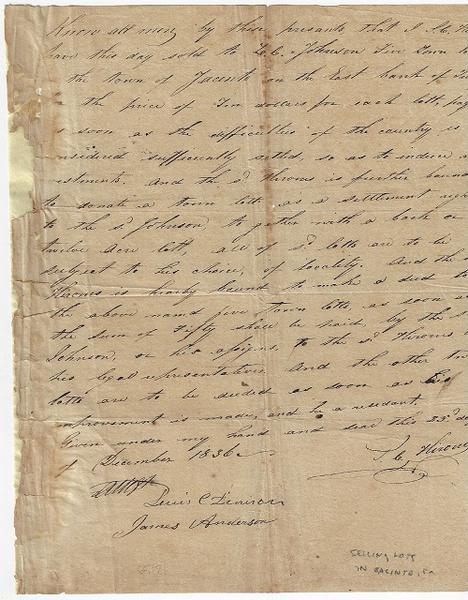 Know all men by these presants, that I S. C. Hi
have this day sold to L. C. Johnson Five Town lo
the town of Jacinto on the East bank of
the price of Ten dollars for each lott, pay
soon as the difficulties of the country is
nsidered sufficiently settled, so as to induce
estments. And the sd Hiroms is further boun
to donate a town lott as a settlement
to the sd Johnson to gether with a back or
twelve acre lott, all of sd lotts are to be
subject to his choice, of locality. And the s
Hiroms is hearby bound to make a deed to
the above named five town lotts, as soon as
the sum of Fifty shall be paid, by the s
Johnson, or his assigns, to the sd Hiroms
his legal representatives. And the other tw
lotts are to be deeded as soon as
improvement is made, and be a resident.
Given under my hand and seal this 23d d
of December 1836
S. C. Hiroms
Attest
Lewis C
James Anderson
SELLING LOTS
IN JACINTO,